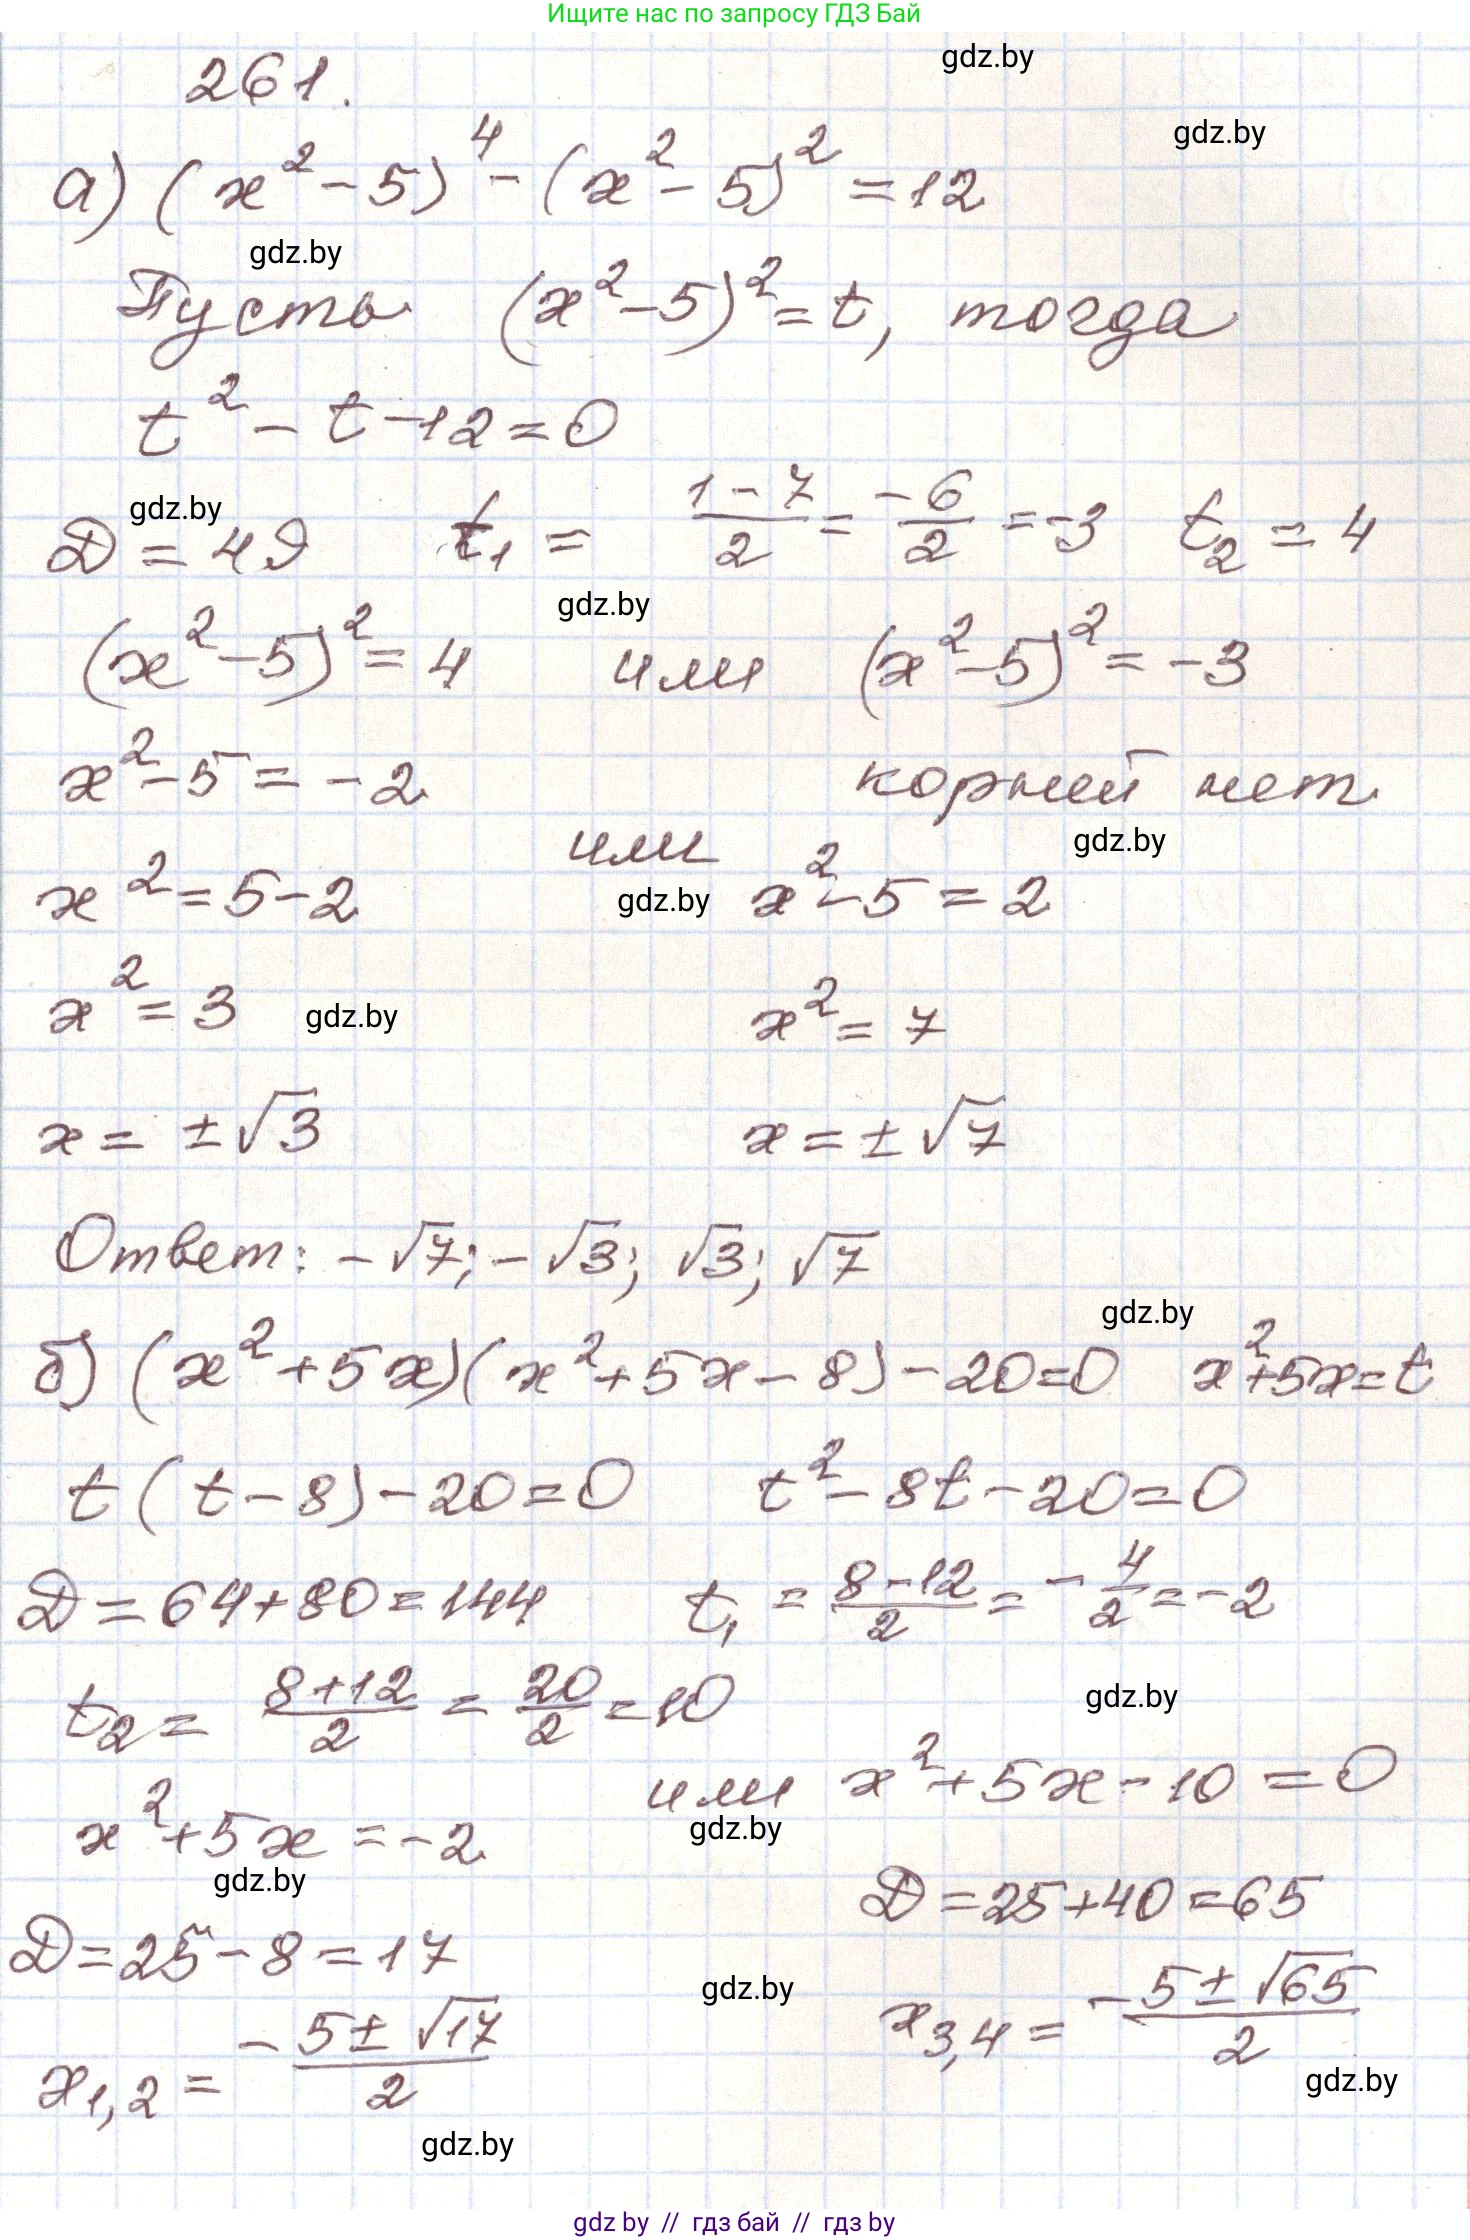 Ищите нас по запросу ГДЗ Бай
gdz.by
261.
gdz.by
а) (x² - 5)⁴ - (x² - 5)² = 12
gdz.by
Пусть (x² - 5)² = t, тогда
t² - t - 12 = 0
gdz.by
D = 49 t₁ = (1 - 7)/2 = -6/2 = -3 t₂ = 4
gdz.by
(x² - 5)² = 4 или (x² - 5)² = -3
x² - 5 = -2 корней нет
gdz.by
или
x² = 5 - 2 gdz.by x² - 5 = 2
x² = 3 gdz.by x² = 7
x = ±√3 x = ±√7
Ответ: -√7; -√3; √3; √7
gdz.by
б) (x² + 5x)(x² + 5x - 8) - 20 = 0 x² + 5x = t
t(t - 8) - 20 = 0 t² - 8t - 20 = 0
D = 64 + 80 = 144 t₁ = (8 - 12)/2 = -4/2 = -2
t₂ = (8 + 12)/2 = 20/2 = 10 gdz.by
x² + 5x = -2 или x² + 5x - 10 = 0
gdz.by
gdz.by
D = 25 + 40 = 65
D = 25 - 8 = 17
gdz.by
x₃,₄ = (-5 ± √65)/2
x₁,₂ = (-5 ± √17)/2
gdz.by
gdz.by
gdz by // гдз бай // гдз by